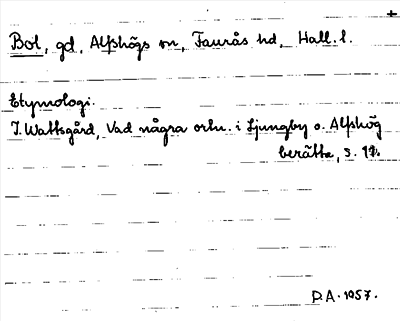 Bol, gd, Alfshögs sn, Faurås hd, Hall. l.
Etymologi.
J. Wattsgård, Vad några ortn. i Ljungby o. Alfshög
berätta, s.
D.A. 1957.